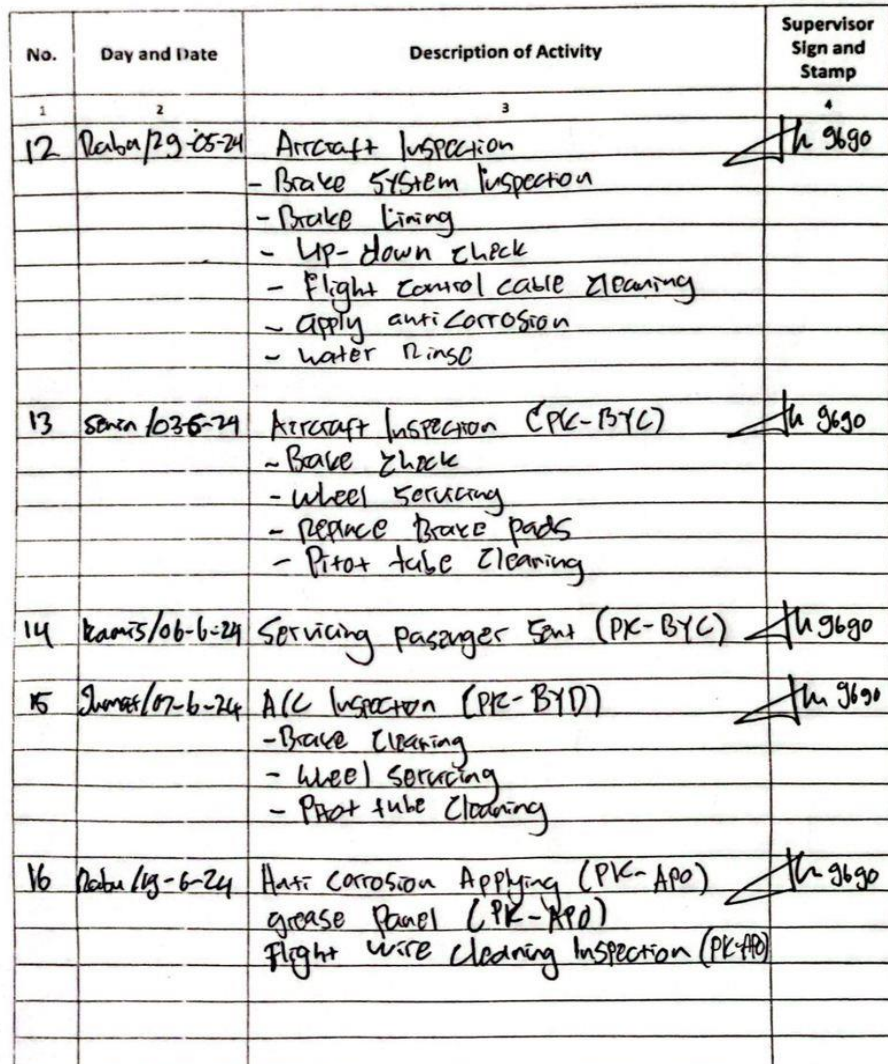 No. Day and Date Description of Activity Supervisor Sign and Stamp
1 2 3 4
12 Rabu/29-05-24 Aircraft Inspection 9690
- Brake System Inspection
- Brake Lining
- Up-down check
- Flight control cable cleaning
- apply anti corrosion
- water Rinse
13 Senin/03-6-24 Aircraft Inspection (PK-BYC) 9690
- Brake check
- wheel servicing
- Replace Brake pads
- Pitot tube cleaning
14 kamis/06-6-24 Servicing pasanger seat (PK-BYC) 9690
15 Jumat/07-6-24 A/C Inspection (PK-BYD) 9690
- Brake Cleaning
- wheel servicing
- Pitot tube Cleaning
16 Rabu/19-6-24 Anti corrosion Applying (PK-APO) 9690
grease Panel (PK-APO)
Flight wire cleaning Inspection (PK-APO)